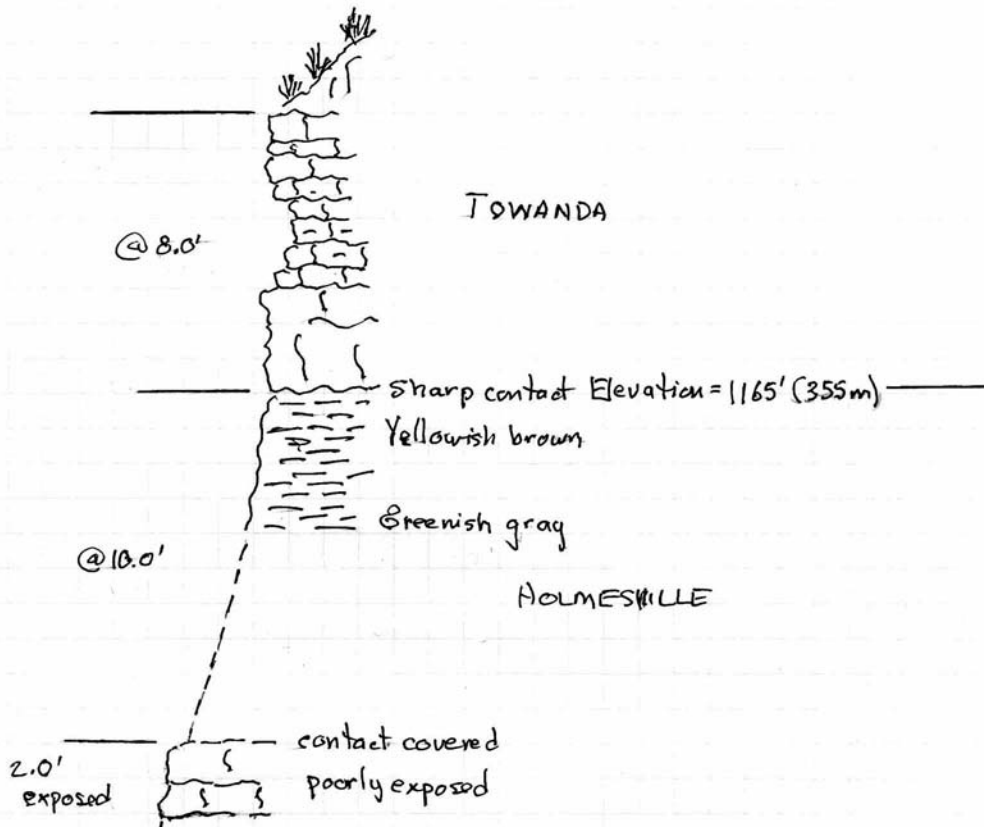 TOWANDA
@ 8.0'
sharp contact Elevation = 1165' (355m)
Yellowish brown
Greenish gray
@ 10.0'
HOLMESVILLE
contact covered
2.0'
exposed
poorly exposed